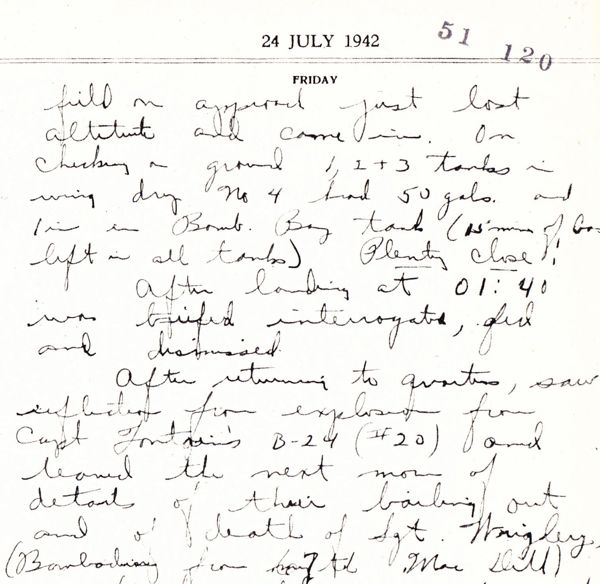 24 JULY 1942 51 120
FRIDAY
field on approach just lost
altitude and came in. On
checking on ground 1, 2 + 3 tanks in
wing dry No 4 had 50 gals. and
1 in in Bomb. Bay tank (15 mins of
left in all tanks) Plenty close!
After landing at 01:40
was briefed interrogated, fed
and dismissed.
After returning to quarters, saw
reflection from explosion from
Capt Fontain's B-24 (#20) and
learned the next morn of
details of their bailing out
and of death of Sgt. Wrigley.
(from Mac Dill)